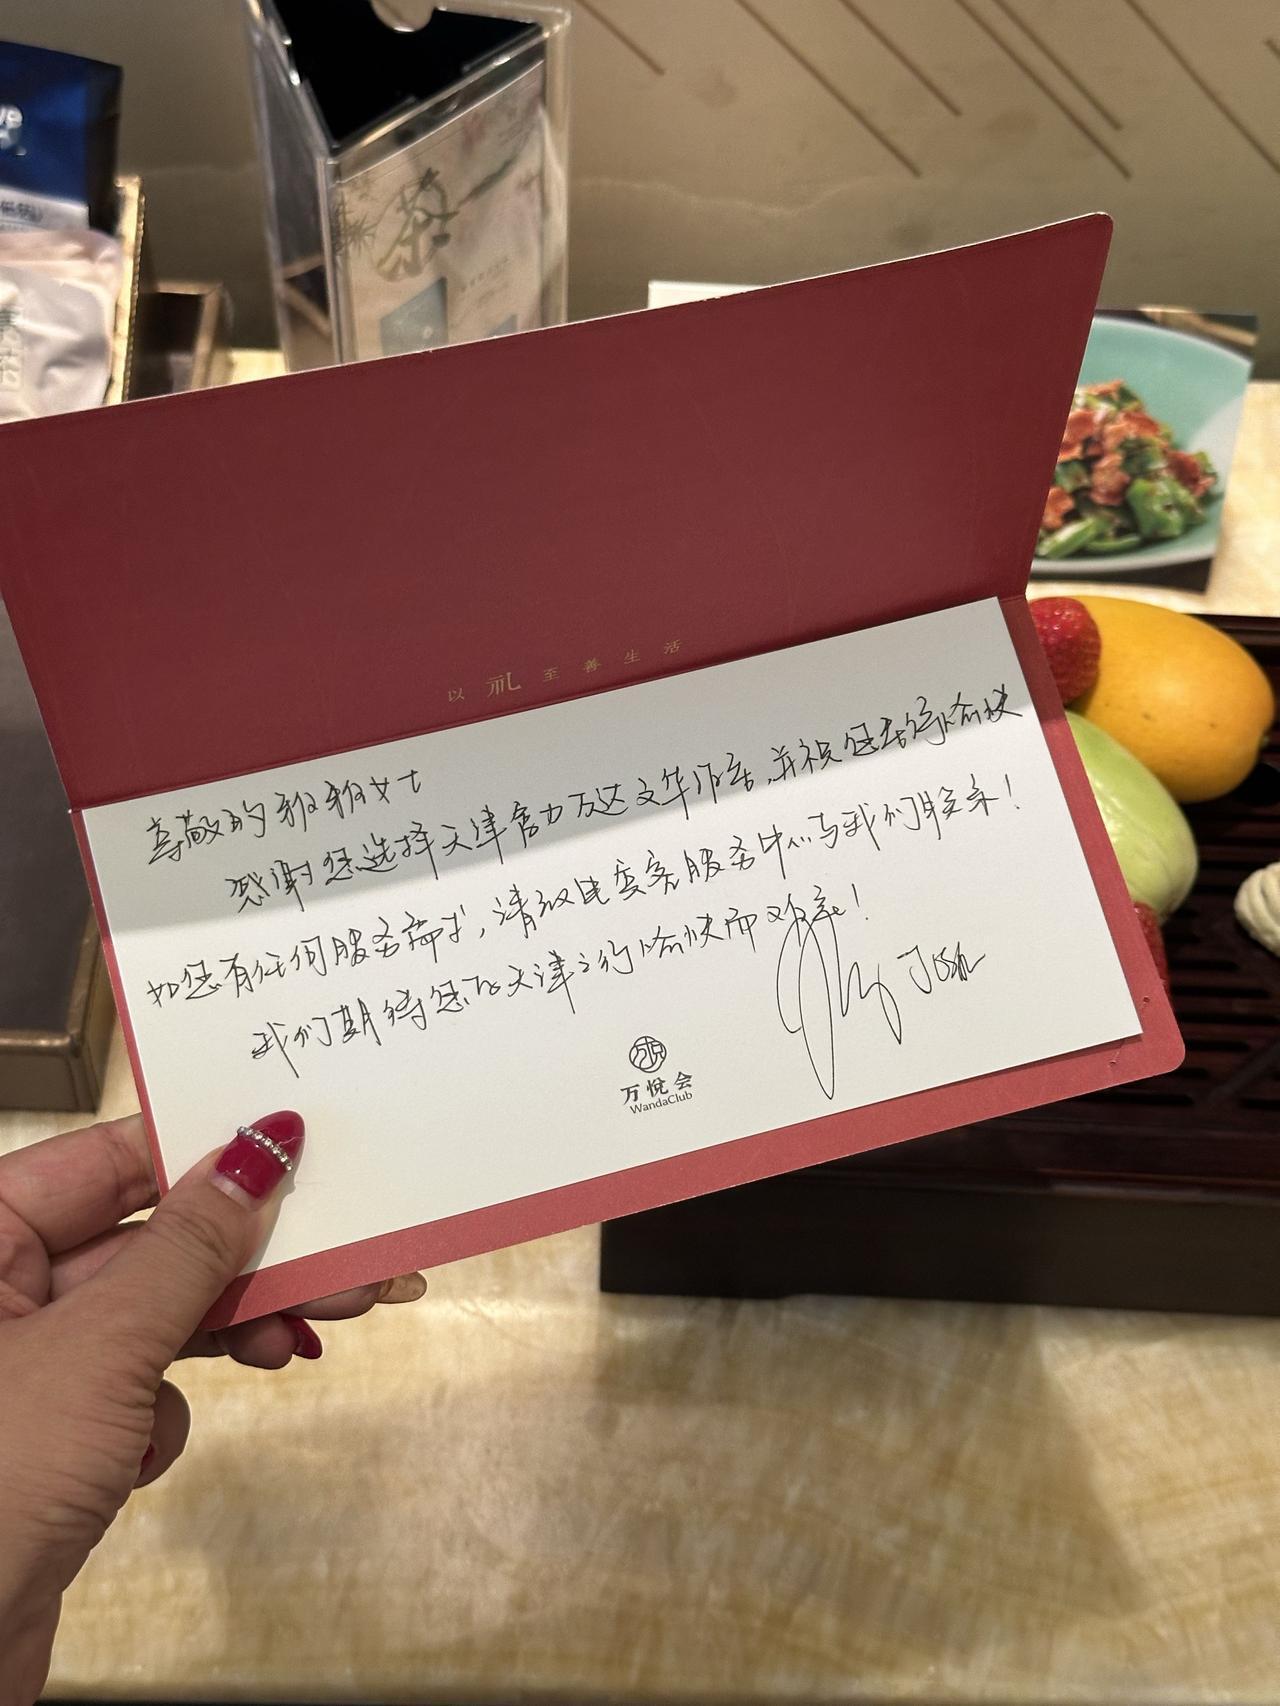 茶
以礼至善生活
尊敬的雅雅女士
感谢您选择天津富力万达文华酒店,并祝您旅行愉快
如您有任何服务需求,请致电宾客服务中心与我们联系!
我们期待您的天津之行愉快而难忘!
Josh
万悦会
WandaClub